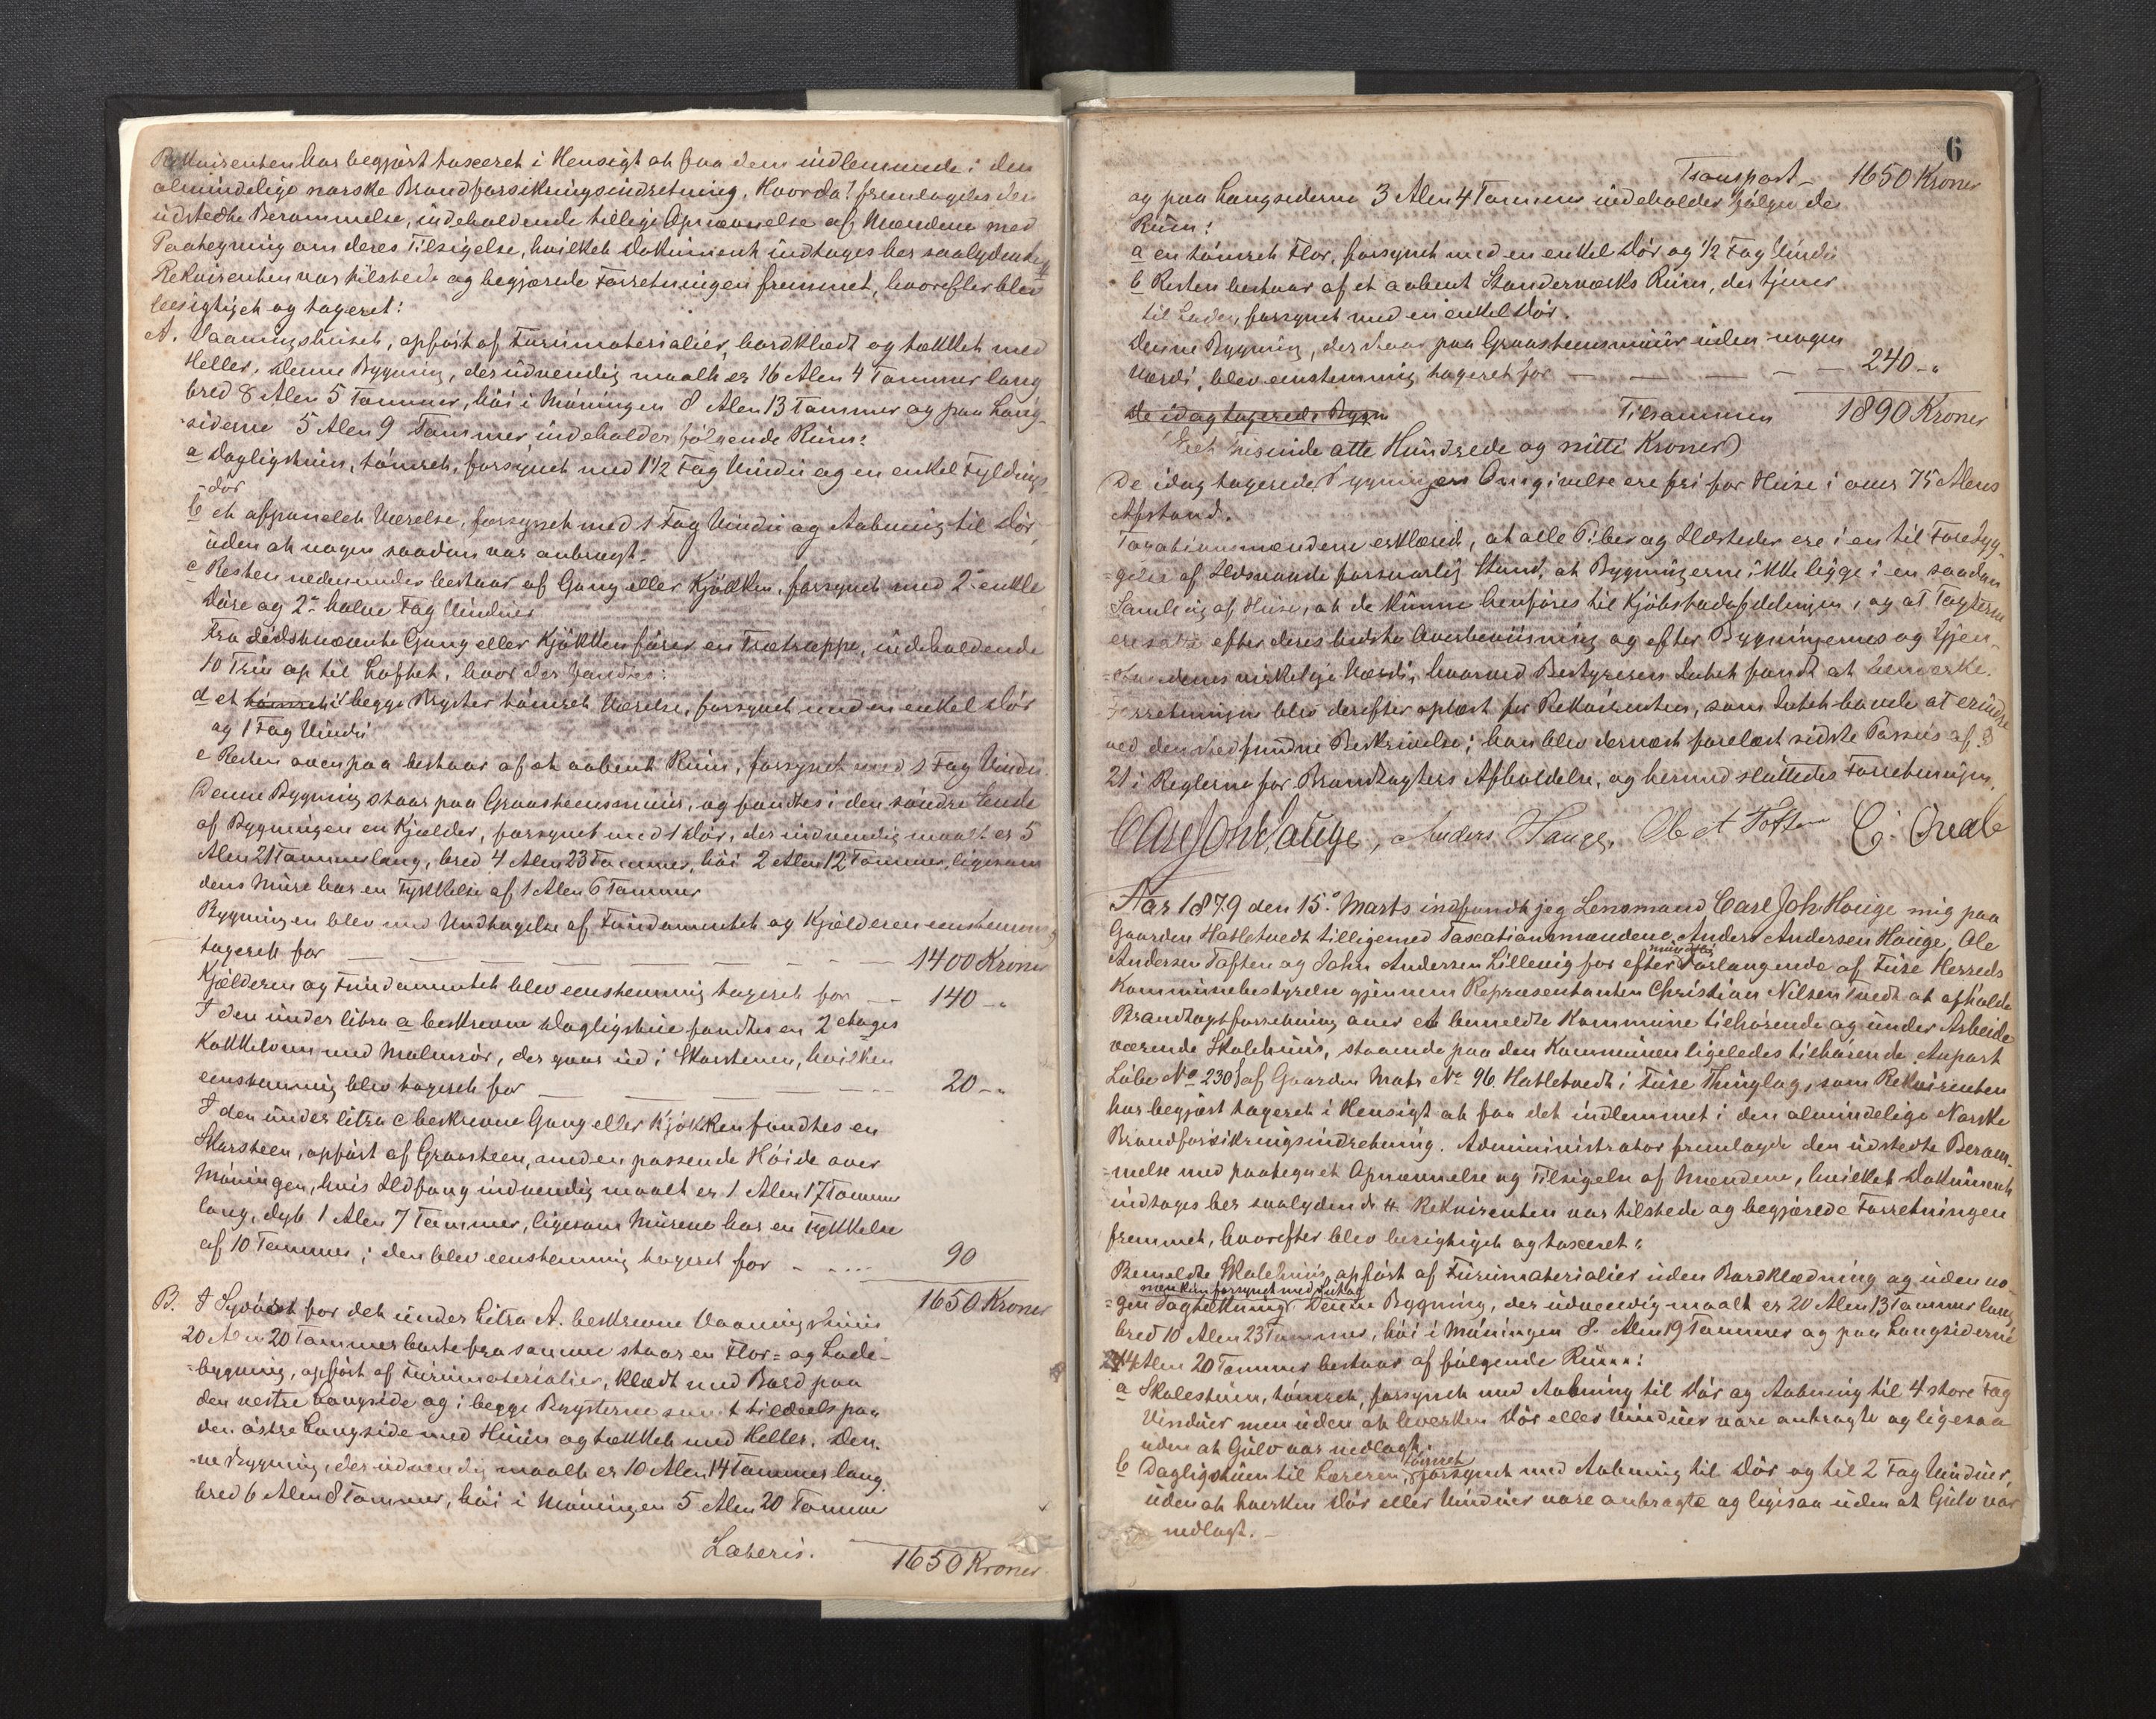 Rekvirenten har begjært taxeret i Hensigt at faa dem indlemmede i den
almindelige norske Brandforsikringsindretning. Hvorda! fremlagdes den
udstedte Berammelse, indeholdende tillige Opnævnelse af Mændene med
Paategning om deres Tilsigelse, hvilket Dokument indtages her saalydende #
Rekvirenten var tilstede og begjærede Forretningen fremmet, hvorefter blev
besigtiget og taxeret:
A. Vaaningshuset, opført af Furumaterialier, bordklædt og tækket med
Heller. Denne Bygning, der udvendig maalt er 16 Alen 4 Tommer lang
bred 8 Alen 5 Tommer, høi i Møningen 8 Alen 13 Tommer og paa Lang-
-siderne 5 Alen 9 Tommer indeholder følgende Rum:
a Dagligstuen, tømret, forsynet med 1 1/2 Fag Vindu og en enkel Fyldings
-dør
b et afpanelet Værelse, forsynet med 1 Fag Vindu og Aabning til Dør,
uden at nogen saadan var anbragt.
c Resten nedenunder bestaar af Gang eller Kjøkken, forsynet med 2de enkle
Døre og 2de halve Fag Vinduer
Fra sidstnævnte Gang eller Kjøkken fører en Trætrappe, indeholdende
10 Trin op til Loftet, hvor der fandtes:
d et tømret i begge Bryster tømret Værelse, forsynet med en enkel Dør
og 1 Fag Vindu
e Resten ovenpaa bestaar af et aabent Rum, forsynet med 1 Fag Vindu.
Denne Bygning staar paa Graasteensmuur, og fandtes i den søndre Ende
af Bygningen en Kjælder, forsynet med 1 Dør, der indvendig maalt er 5
Alen 21 Tommer lang, bred 4 Alen 23 Tommer, høi 2 Alen 12 Tommer, ligesom
dens Mure har en Tykkelse af 1 Alen 6 Tommer
Bygningen blev med Undtagelse af Fundamentet og Kjælderen eenstemmig
taxeret for — — — — — — 1400 Kroner
Kjælderen og Fundamentet blev eenstemmig taxeret for — — 140 - "
I den under litra a beskrevne Dagligstue fandtes en 2 etages
Kakkelovn med Malmrør, der gaar ud i Skorstenen, hvilken
enstemmig blev taxeret for — — — — 20 - "
I den under litra c beskrevne Gang eller Kjøkken fandtes en
Skorsteen, opført af Graasteen, med en passende Høide over
Møningen, hvis Ildfang indvendig maalt er 1 Alen 17 Tommer
lang, dyb 1 Alen 7 Tommer, ligesom Murene har en Tykkelse
af 10 Tommer; den blev eenstemmig taxeret for - - .... 90
1650 Kroner
B. I Sydøst for det under Litra A. beskrevne Vaaningshuus
20 Alen 20 Tommer borte fra samme staar en Flor- og Lade-
-bygning, opført af Furumaterialier, klædt med Bord paa
den vestre Langside og i begge Brysterne samt tildeels paa
den østre Langside med Huun og tækket med Heller. Den-
-ne Bygning, der udvendig maalt er 10 Alen 14 Tommer lang
bred 6 Alen 8 Tommer, høi i Møningen 5 Alen 20 Tommer
Lateris. 1650 Kroner
6
Transport - 1650 Kroner
og paa Langsiderne 3 Alen 4 Tommer indeholder følgende
Rum:
a en tømret Flor, forsynet med en enkel Dør og 1/2 Fag Vindu
b Resten bestaar af et aabent Standerværks Rum, der tjener
til Lade, forsynet med en enkel Dør.
Denne Bygning, der staar paa Graasteensmuur uden nogen
Værdi, blev eenstemmig taxeret for — — — — — 240 - "
De idag taxerede Bygn Tilsammen 1890 Kroner
(Eet tusinde otte Hundrede og nitti Kroner)
De idag taxerede Bygningers Omgivelse ere fri for Huse i over 75 Alens
Afstand.
Taxationsmændene erklærede, at alle Piber og Ildsteder ere i en til Forebyg-
-gelse af Ildsvaade forsvarlig Stand, at Bygningerne ikke ligge i en saadan
Samling af Huse, at de kunne henføres til Kjøbstadafdelingen, og at Taxterne
ere satte efter deres bedste Overbeviisning og efter Bygningernes og Gjen-
-standenes virkelige Værdi, hvorved Bestyreren Intet fandt at bemærke.
Forretningen blev derefter oplæst for Rekvirenten, som Intet havde at erindre
ved den stedfundne Beskrivelse; han blev dernæst forelæst sidste Passus af §
21 i Reglerne for Brandtaxters Afholdelse, og hermed sluttedes Forretningen.
Carl Joh Hauge, Anders Hauge, Ole A Toften
Aar 1879 den 15de Marts indfandt jeg Lensmand Carl Joh. Hauge mig paa
Gaarden Hatletvedt tilligemed Taxationsmændene Anders Andersen Hauge, Ole
Andersen Toften og John Andersen Lillevig for efter mundtlig Forlangende af Fuse Herreds
Kommunebestyrelse gjennem Repræsentanten Christian Nilsen Tvedt at afholde
Brandtaxtforretning over et bemeldte Kommune tilhørende og under Arbeide
værende Skolehuus, staaende paa den Kommunen ligeledes tilhørende Anpart
Løbe No 230 f af Gaarden Matr No 96. Hatletvedt i Fuse Thinglag, som Rekvirenten
har begjært taxeret i Hensigt at faa det indlemmet i den almindelige Norske
Brandforsikringsindretning. Administrator fremlagde den udstedte Beram-
-melse med paategnet Opnævnelse og Tilsigelse af Mændene, hvilket Dokument
indtages her saalydende #. Rekvirenten var tilstede og begjærede Forretningen
fremmet, hvorefter blev besigtiget og taxeret:
Bemeldte Skolehuus, opført af Furumaterialier uden Bordklædning og uden no-
-gen Tagtækning men kun forsynet med Sutag Denne Bygning, der udvendig maalt er 20 Alen 13 Tommer lang,
bred 10 Alen 23 Tommer, høi i Møningen 8 Alen 19 Tommer og paa Langsiderne
4 Alen 20 Tommer bestaar af følgende Rum:
a Skolestuen, tømret, forsynet med Aabning til Dør og Aabning til 4 store Fag
Vinduer men uden at hverken Dør eller Vinduer vare anbragte og ligesaa
uden at Gulv var nedlagt.
b Dagligstuen til Læreren, tømret forsynet med Aabning til Dør og til 2 Fag Vinduer,
uden at hverken Dør eller Vinduer vare anbragte og ligesaa uden at Gulv var
nedlagt. -